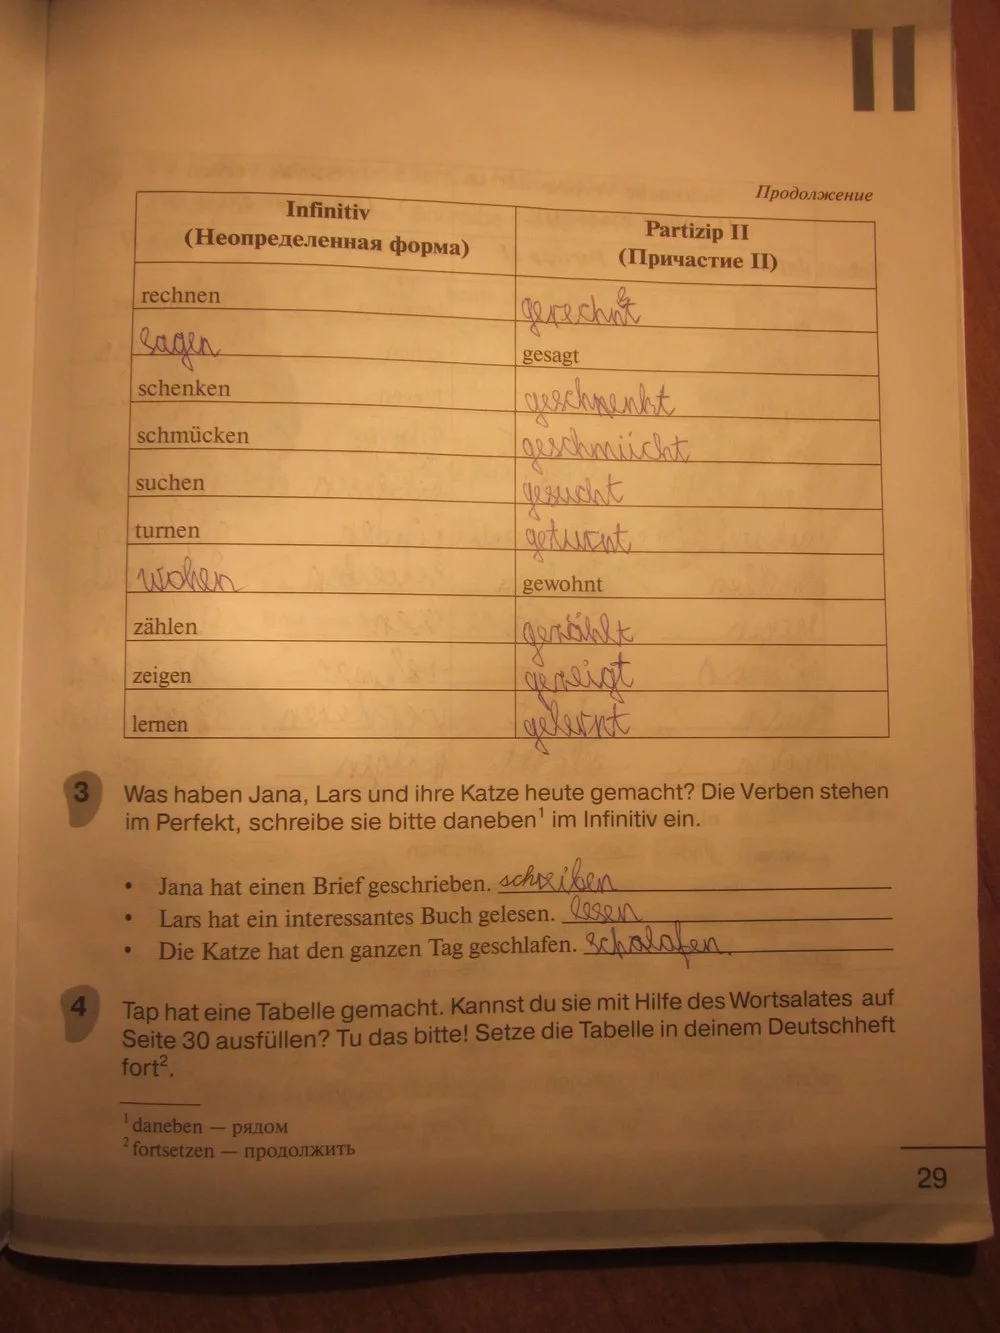 II
Продолжение
Infinitiv
(Неопределенная форма)
Partizip II
(Причастие II)
rechnen gerechnet
sagen gesagt
schenken geschenkt
schmücken geschmückt
suchen gesucht
turnen geturnt
wohen gewohnt
zählen gezählt
zeigen gezeigt
lernen gelernt
3 Was haben Jana, Lars und ihre Katze heute gemacht? Die Verben stehen
im Perfekt, schreibe sie bitte daneben¹ im Infinitiv ein.
• Jana hat einen Brief geschrieben. schreiben
• Lars hat ein interessantes Buch gelesen. lesen
• Die Katze hat den ganzen Tag geschlafen. schalafen.
4 Tap hat eine Tabelle gemacht. Kannst du sie mit Hilfe des Wortsalates auf
Seite 30 ausfüllen? Tu das bitte! Setze die Tabelle in deinem Deutschheft
fort².
¹ daneben — рядом
² fortsetzen — продолжить
29